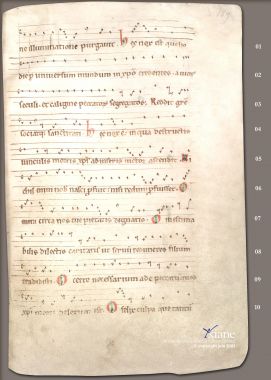 ne illuminatione purgauit. hec nox est que ho
die p uniuersum mundum in xpo credentes a uiciis
seculi et caligine peccatorum segregatos. Reddit gre
sociat sanctitati. hec nox e. in qua destructis
uinculis mortis xps ab inferis uictor ascendit. N
chil enim nob nasci pfuit nisi redimi pfuisset. O
mira circa nos tue pietatis dignatio. O inestima
bilis dilectio caritatis ut seruu redimeres filium
tradidisti. O certe necessarium ade peccatum quod
xpi morte deletum est. O felix culpa que talem
01
02
03
04
05
06
07
08
09
10